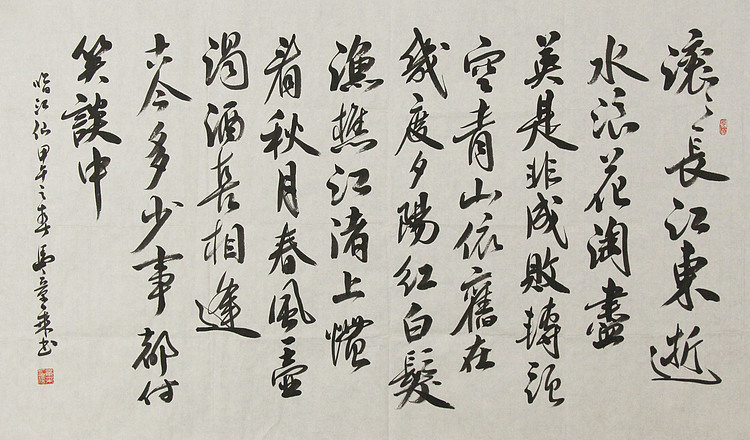 滚々長江東逝
水浪花淘盡
英是非成敗轉頭
空青山依舊在
幾度夕陽紅白髮
漁樵江渚上慣
看秋月春風一壺
濁酒喜相逢
古今多少事都付
笑談中
临江仙甲午之春書